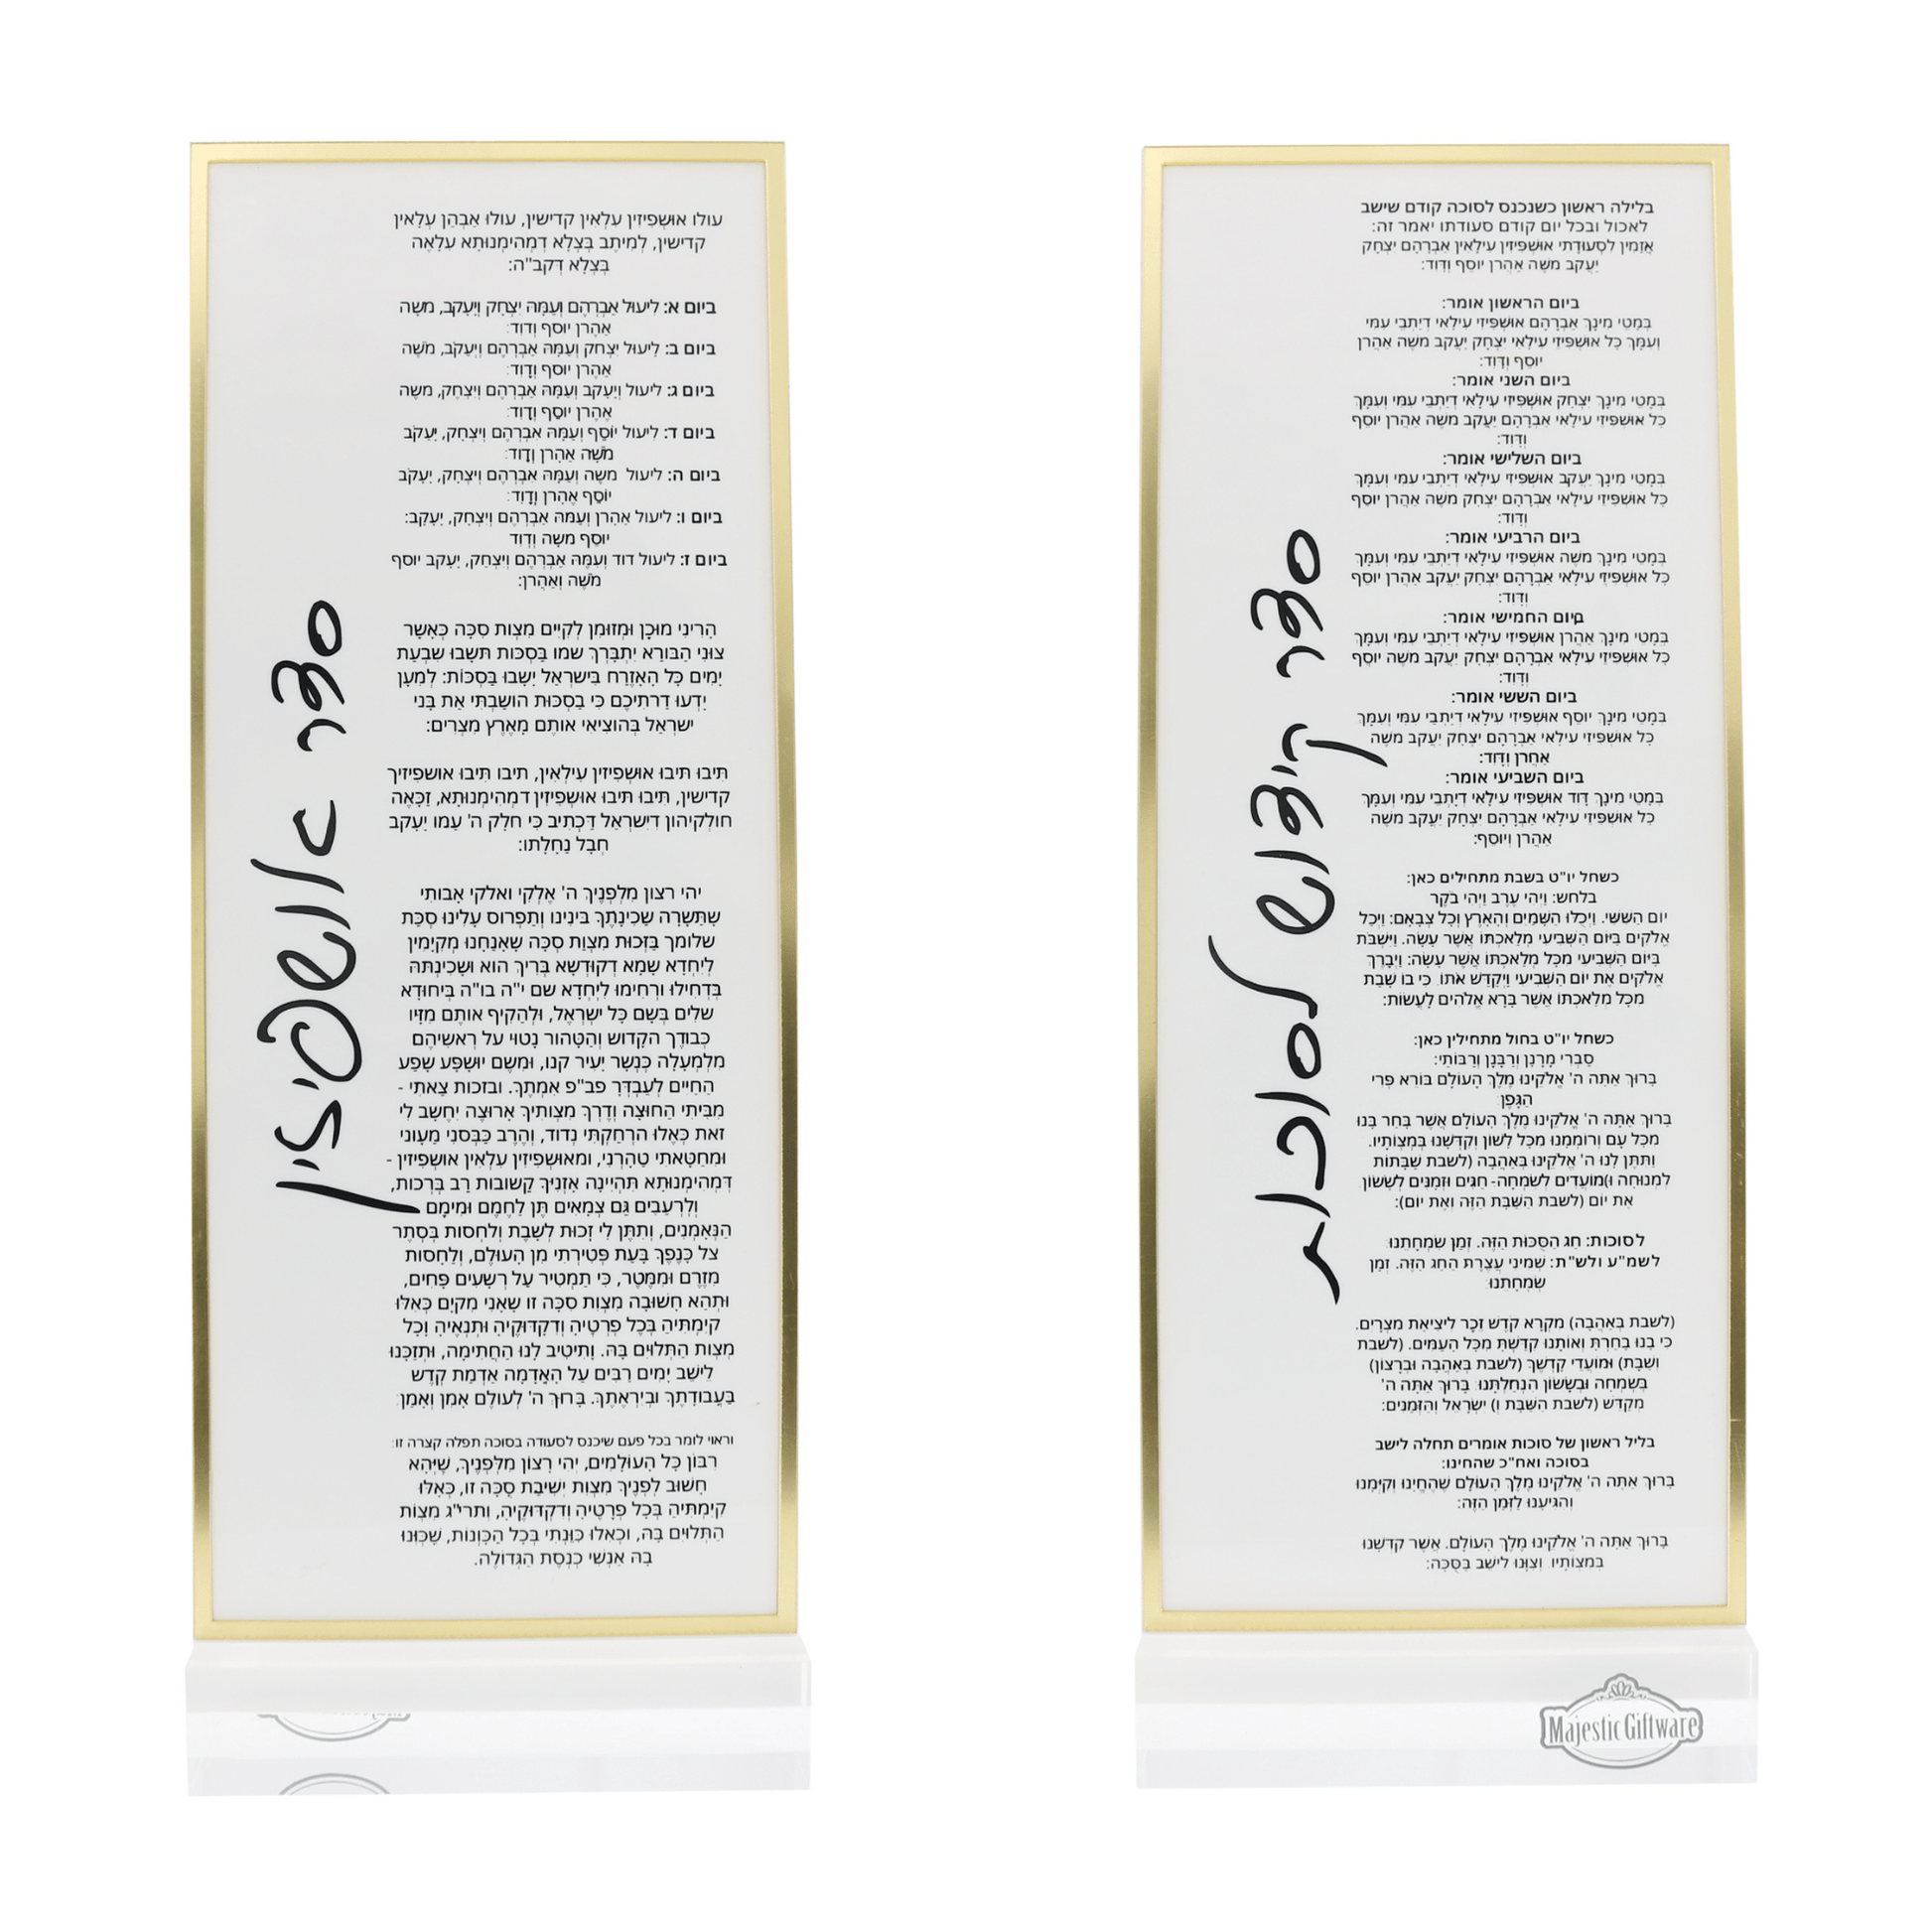 סדר אושפיזין
עולו אושפיזין עלאין קדישין, עולו אבהן עלאין
קדישין, למיתב בצלא דמהימנותא עלאה
בצלא דקב"ה:
ביום א: ליעול אברהם ועמה יצחק ויעקב, משה
אהרן יוסף ודוד:
ביום ב: ליעול יצחק ועמה אברהם ויעקב, משה
אהרן יוסף ודוד:
ביום ג: ליעול ויעקב ועמה אברהם ויצחק, משה
אהרן יוסף ודוד:
ביום ד: ליעול יוסף ועמה אברהם ויצחק, יעקב
משה אהרן ודוד:
ביום ה: ליעול משה ועמה אברהם ויצחק, יעקב
יוסף אהרן ודוד:
ביום ו: ליעול אהרן ועמה אברהם ויצחק, יעקב:
יוסף משה ודוד
ביום ז: ליעול דוד ועמה אברהם ויצחק, יעקב יוסף
משה ואהרן:
הריני מוכן ומזומן לקיים מצות סכה כאשר
צוני הבורא יתברך שמו בסכות תשבו שבעת
ימים כל האזרח בישראל ישבו בסכות: למען
ידעו דרתיכם כי בסכות הושבתי את בני
ישראל בהוציאי אותם מארץ מצרים:
תיבו תיבו אושפיזין עילאין, תיבו תיבו אושפיזיך
קדישין, תיבו תיבו אושפיזין דמהימנותא, זכאה
חולקיהון דישראל דכתיב כי חלק ה' עמו יעקב
חבל נחלתו:
יהי רצון מלפניך ה' אלקי ואלקי אבותי
שתשרה שכינתך בינינו ותפרוס עלינו סכת
שלומך בזכות מצות סכה שאנחנו מקימין
ליחדא שמא דקודשא בריך הוא ושכינתה
בדחילו ורחימו ליחדא שם י"ה בו"ה ביחודא
שלים בשם כל ישראל, ולהקיף אותם מזיו
כבודך הקדוש והטהור נטוי על ראשיהם
מלמעלה כנשר יעיר קנו, ומשם יושפע שפע
החיים לעבדך פב"פ אמתך. ובזכות צאתי -
מביתי החוצה ודרך מצותיך ארוצה יחשב לי
זאת כאלו הרחקתי נדוד, והרב כבסני מעוני
ומחטאתי טהרני, ומאושפיזין עלאין אושפיזין -
דמהימנותא תהיינה אזניך קשובות רב ברכות,
ולרעבים גם צמאים תן לחמם ומימם
הנאמנים, ותתן לי זכות לשבת ולחסות בסתר
צל כנפך בעת פטירתי מן העולם, ולחסות
מזרם וממטר, כי תמטיר על רשעים פחים,
ותהא חשובה מצות סכה זו שאני מקים כאילו
קימתיה בכל פרטיה ודקדוקיה ותנאיה וכל
מצות התלוים בה. ותיטיב לנו החתימה, ותזכנו
לישב ימים רבים על האדמה אדמת קדש
בעבודתך וביראתך. ברוך ה' לעולם אמן ואמן
וראוי לומר בכל פעם שיכנס לסעודה בסוכה תפלה קצרה זו:
רבון כל העולמים, יהי רצון מלפניך, שיהא
חשוב לפניך מצות ישיבת סכה זו, כאלו
קימתיה בכל פרטיה ודקדוקיה, ותרי"ג מצות
התלוים בה, וכאלו כונתי בכל הכונות, שכונו
בה אנשי כנסת הגדולה.
סדר קידוש לסוכות
בלילה ראשון כשנכנס לסוכה קודם שישב
לאכול ובכל יום קודם סעודתו יאמר זה:
אזמין לסעודתי אושפיזין עילאין אברהם יצחק
יעקב משה אהרן יוסף ודוד:
ביום הראשון אומר:
במטי מינך אברהם אושפיזי עילאי דיתבי עמי
ועמך כל אושפיזי עילאי יצחק יעקב משה אהרן
יוסף ודוד:
ביום השני אומר:
במטי מינך יצחק אושפיזי עילאי דיתבי עמי ועמך
כל אושפיזי עילאי אברהם יעקב משה אהרן יוסף
ודוד:
ביום השלישי אומר:
במטי מינך יעקב אושפיזי עילאי דיתבי עמי ועמך
כל אושפיזי עילאי אברהם יצחק משה אהרן יוסף
ודוד:
ביום הרביעי אומר:
במטי מינך משה אושפיזי עילאי דיתבי עמי ועמך
כל אושפיזי עילאי אברהם יצחק יעקב אהרן יוסף
ודוד:
ביום החמישי אומר:
במטי מינך אהרן אושפיזי עילאי דיתבי עמי ועמך
כל אושפיזי עילאי אברהם יצחק יעקב משה יוסף
ודוד:
ביום הששי אומר:
במטי מינך יוסף אושפיזי עילאי דיתבי עמי ועמך
כל אושפיזי עילאי אברהם יצחק יעקב משה
אהרן ודוד:
ביום השביעי אומר:
במטי מינך דוד אושפיזי עילאי דיתבי עמי ועמך
כל אושפיזי עילאי אברהם יצחק יעקב משה
אהרן ויוסף:
כשחל יו"ט בשבת מתחילים כאן:
בלחש: ויהי ערב ויהי בקר
יום הששי. ויכלו השמים והארץ וכל צבאם: ויכל
אלקים ביום השביעי מלאכתו אשר עשה. וישבת
ביום השביעי מכל מלאכתו אשר עשה: ויברך
אלקים את יום השביעי ויקדש אתו. כי בו שבת
מכל מלאכתו אשר ברא אלהים לעשות:
כשחל יו"ט בחול מתחילין כאן:
סברי מרנן ורבנן ורבותי:
ברוך אתה ה' אלקינו מלך העולם בורא פרי
הגפן
ברוך אתה ה' אלקינו מלך העולם אשר בחר בנו
מכל עם ורוממנו מכל לשון וקדשנו במצותיו.
ותתן לנו ה' אלקינו באהבה (לשבת שבתות
למנוחה ו)מועדים לשמחה- חגים וזמנים לששון
את יום (לשבת השבת הזה ואת יום):
לסוכות: חג הסכות הזה. זמן שמחתנו
לשמ"ע ולש"ת: שמיני עצרת החג הזה. זמן
שמחתנו
(לשבת באהבה) מקרא קדש זכר ליציאת מצרים.
כי בנו בחרת ואותנו קדשת מכל העמים. (לשבת
ושבת) ומועדי קדשך (לשבת באהבה וברצון)
בשמחה ובששון הנחלתנו: ברוך אתה ה'
מקדש (לשבת השבת ו) ישראל והזמנים:
בליל ראשון של סוכות אומרים תחלה לישב
בסוכה ואח"כ שהחינו:
ברוך אתה ה' אלקינו מלך העולם שהחינו וקימנו
והגיענו לזמן הזה:
ברוך אתה ה' אלקינו מלך העולם. אשר קדשנו
במצותיו וצונו לישב בסכה:
Majestic Giftware